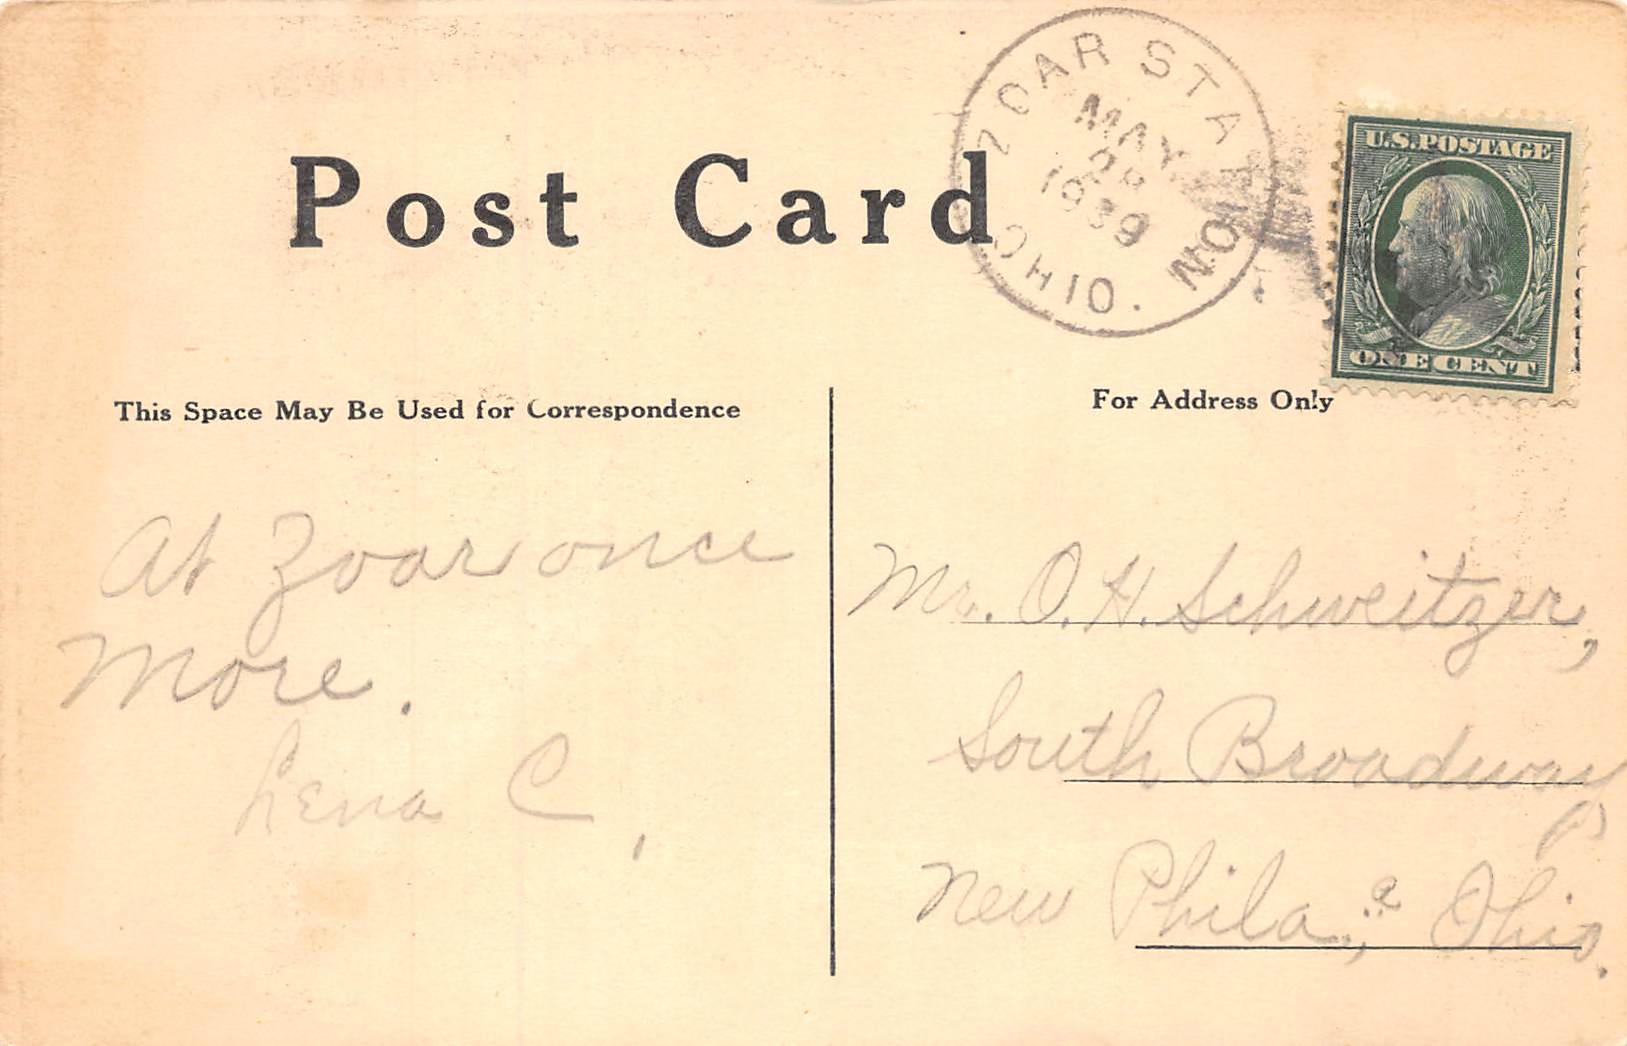 ZOAR STATION
MAY
1939
OHIO.
U.S.POSTAGE
ONE CENT
Post Card
This Space May Be Used for Correspondence
For Address Only
At Zoar once
More.
Lena C,
Mr. O. H. Schweitzer,
South Broadway
New Phila, a Ohio.